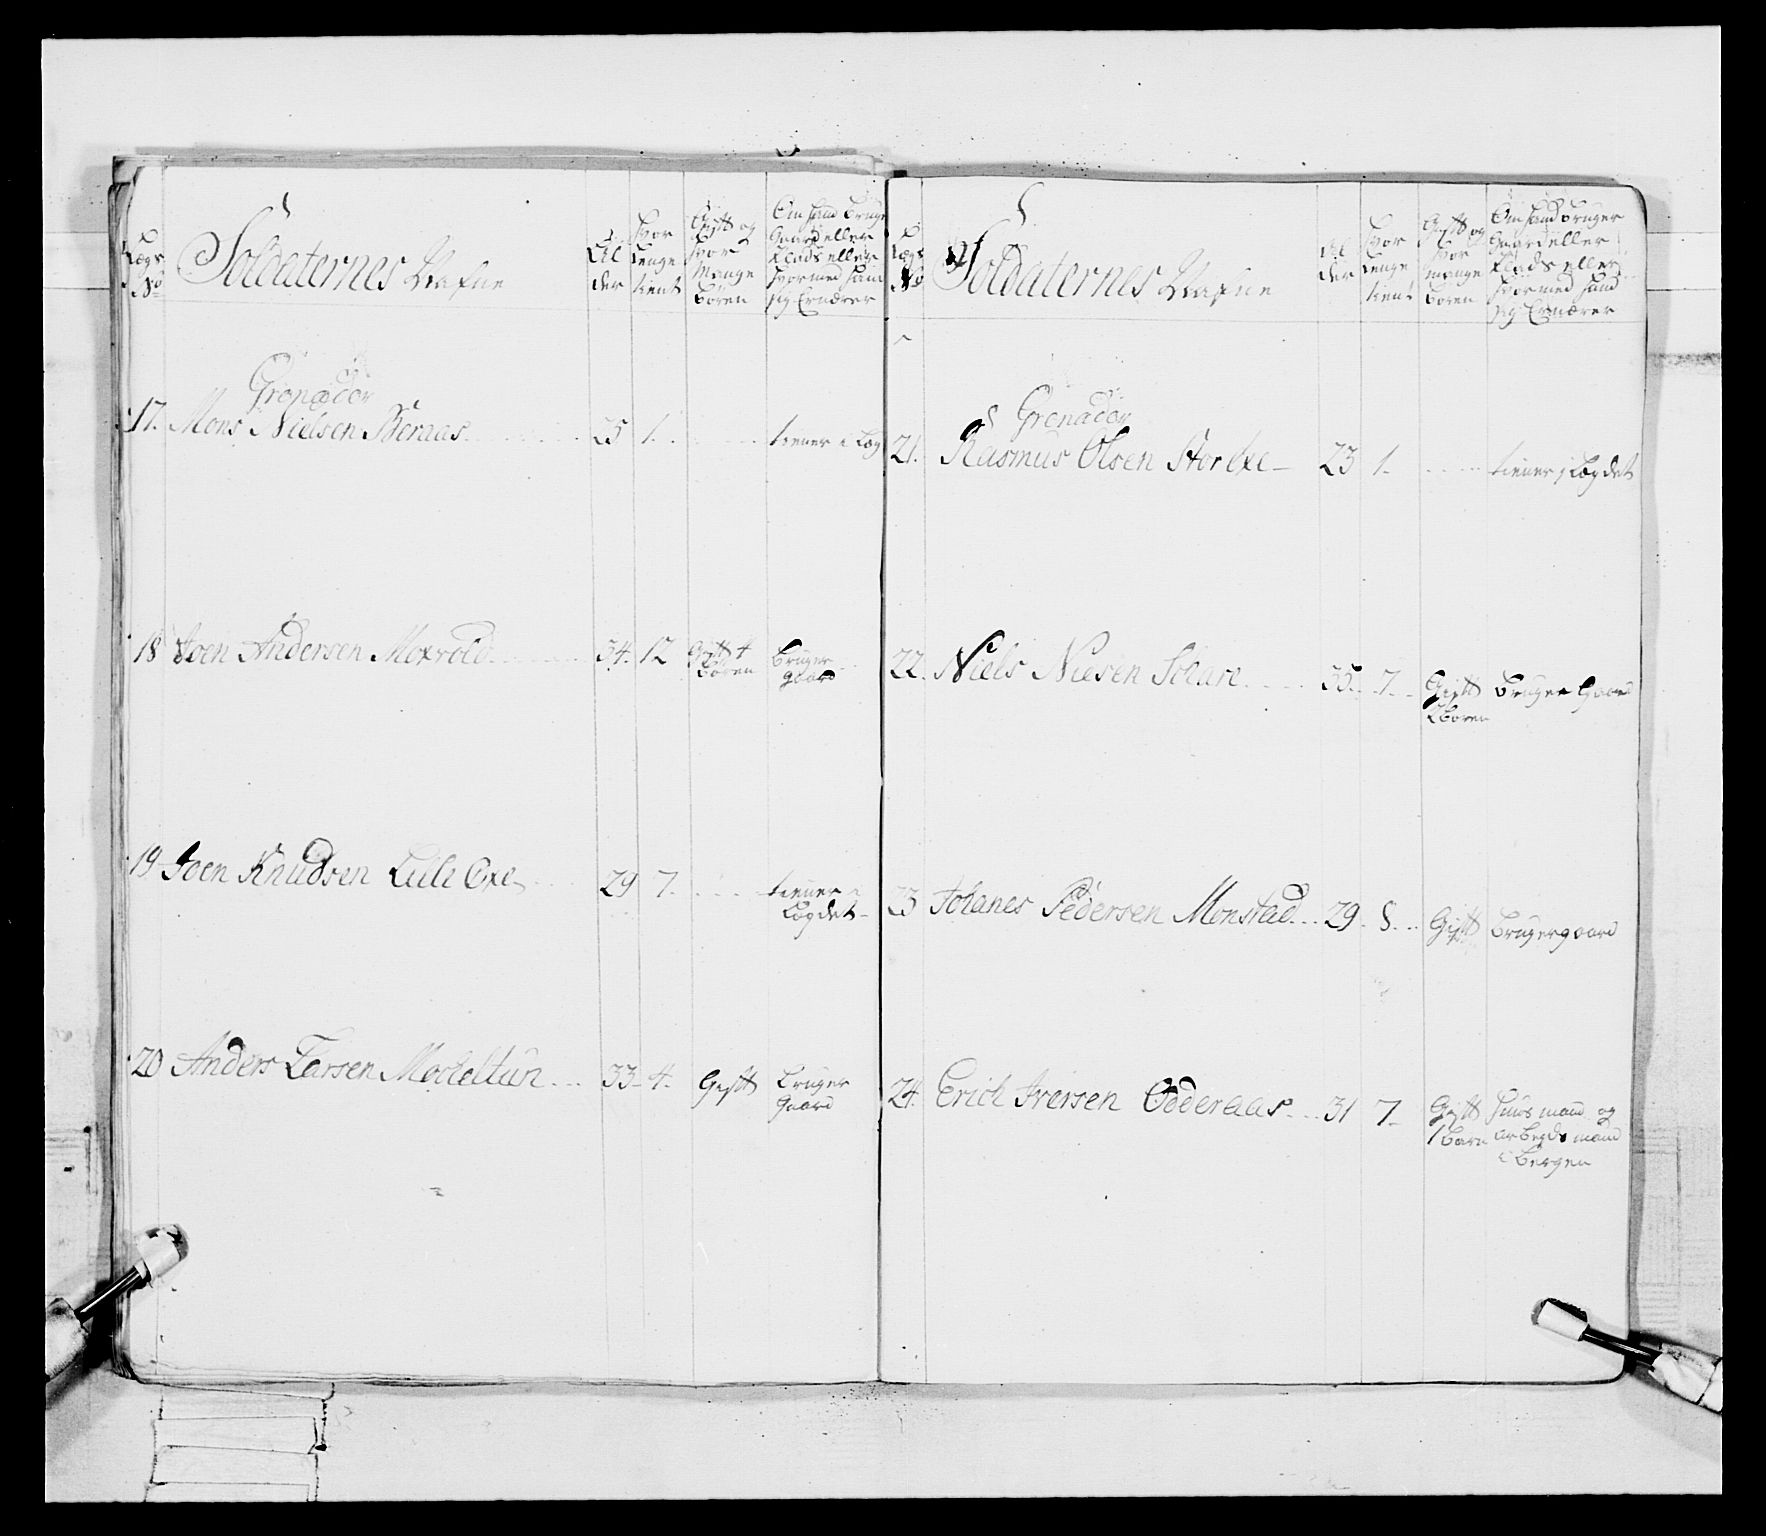 Lægs No
Soldaternes Nafne
Al der
hvor lenge tient
Gift og hvor mange Børen
Om hand bruger Gaard eller Plads eller hvormed hand sig Ernærer
Grenader
17. Mons Nielsen Beraas 25 1. tiener i Læg
18 Joen Andersen Moxrold 34. 12 Gift 4 bruger
Børen gaard
19 Joen Knudsen Lille Oxe 29 7. tiener i
Lægdet
20 Anders Larsen Mocheltun 33 4. Gift bruger
Gaard
Lægs No
Soldaternes Nafne
Al der
hvor lenge tient
Gift og hvor mange Børen
Om hand bruger Gaard eller Plads eller hvormed hand sig Ernærer
Grenader
21. Rasmus Olsen Stor Oxe 23 1. tiener i Lægdet
22. Niels Niesen Schare 35. 7. Gift bruger Gaard
2 Boren
23 Johanes Pedersen Monstad 29. 8. Gift bruger gaard
24. Erich Iversen Odderaas 31 7 Gift huus mand og
1 barn arbeyds mand
i bergen